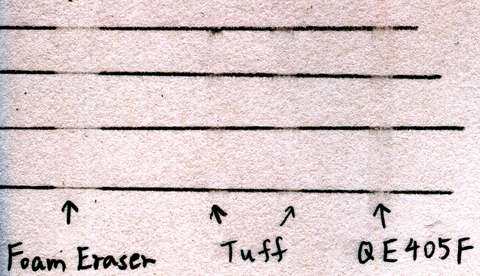 Foam Eraser Tuff QE405F